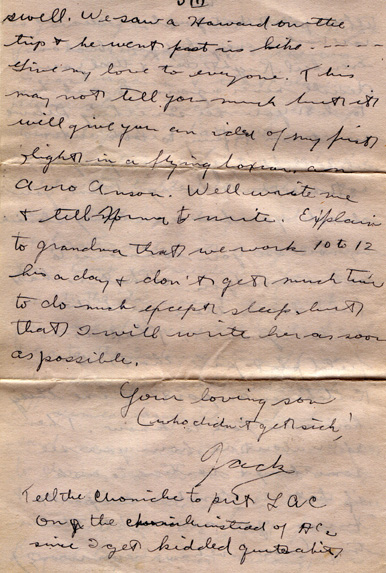 swell. We saw a Howard on the
trip & he went past us like - - - -
Give my love to everyone. This
may not tell you much but it
will give you an idea of my first
flight in a flying boxcar, an
Avro Anson. Well write me
& tell Norma to write. Explain
to grandma that we work 10 to 12
hrs a day & don't get much time
to do much except sleep, but
that I will write her as soon
as possible.
Your loving son
(who didn't get sick)
Jack
Tell the Chronicle to put LAC
on the instead of AC2
since I get kidded quite a bit